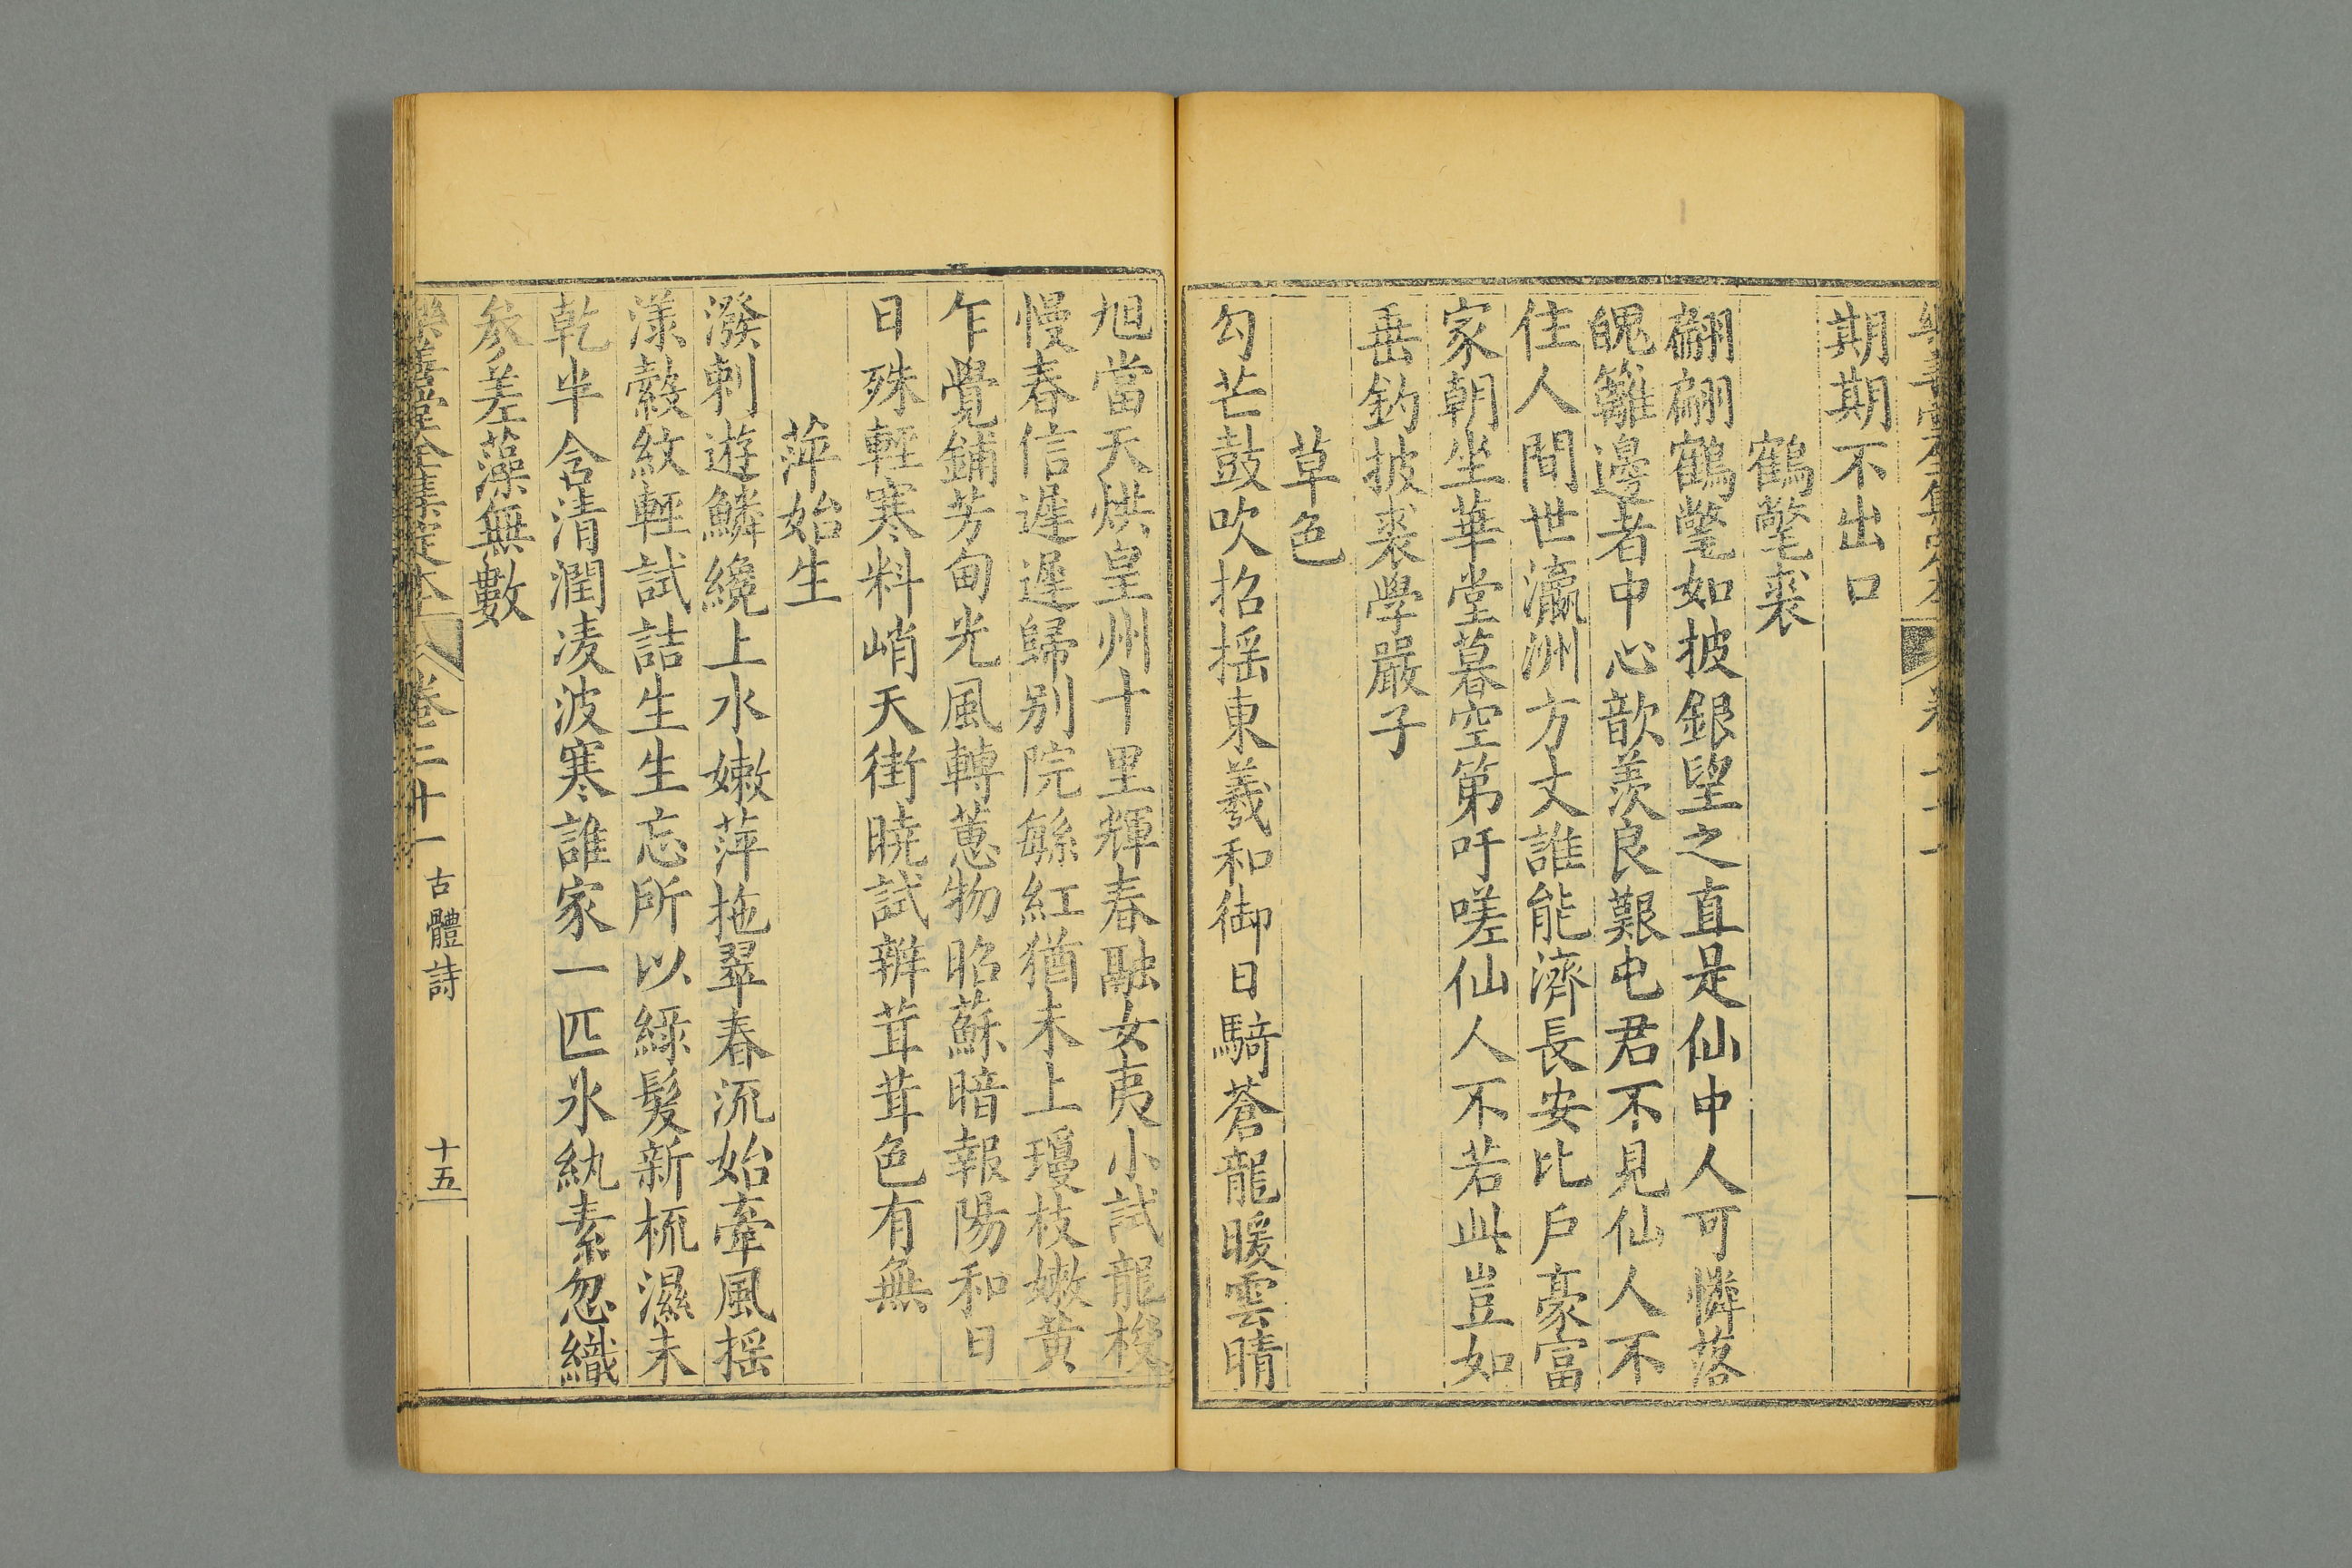 期期不出口
鶴氅裘
翩翩鶴氅如披銀望之直是仙中人可憐落
魄籬邊者中心歆羨良艱屯君不見仙人不
住人間世瀛洲方丈誰能濟長安比戶豪富
家朝坐華堂暮空第吁嗟仙人不若此豈如
垂釣披裘學嚴子
草色
勾芒鼓吹招搖東羲和御日騎蒼龍暖雲晴
旭當天烘皇州十里輝春融女夷小試龍梭
慢春信遲遲歸别院緐紅猶未上瓊枝嫩黃
乍覺鋪芳甸光風轉蕙物昭蘇暗報陽和日
日殊輕寒料峭天街曉試辨茸茸色有無
萍始生
潑剌遊鱗纔上水嫩萍拖翠春流始牽風搖
漾縠紋輕試詰生生忘所以綠髮新梳濕未
乾半含清潤凌波寒誰家一匹氷紈素忽織
參差藻無數
樂善堂全集定本 卷二十一 古體詩 十五